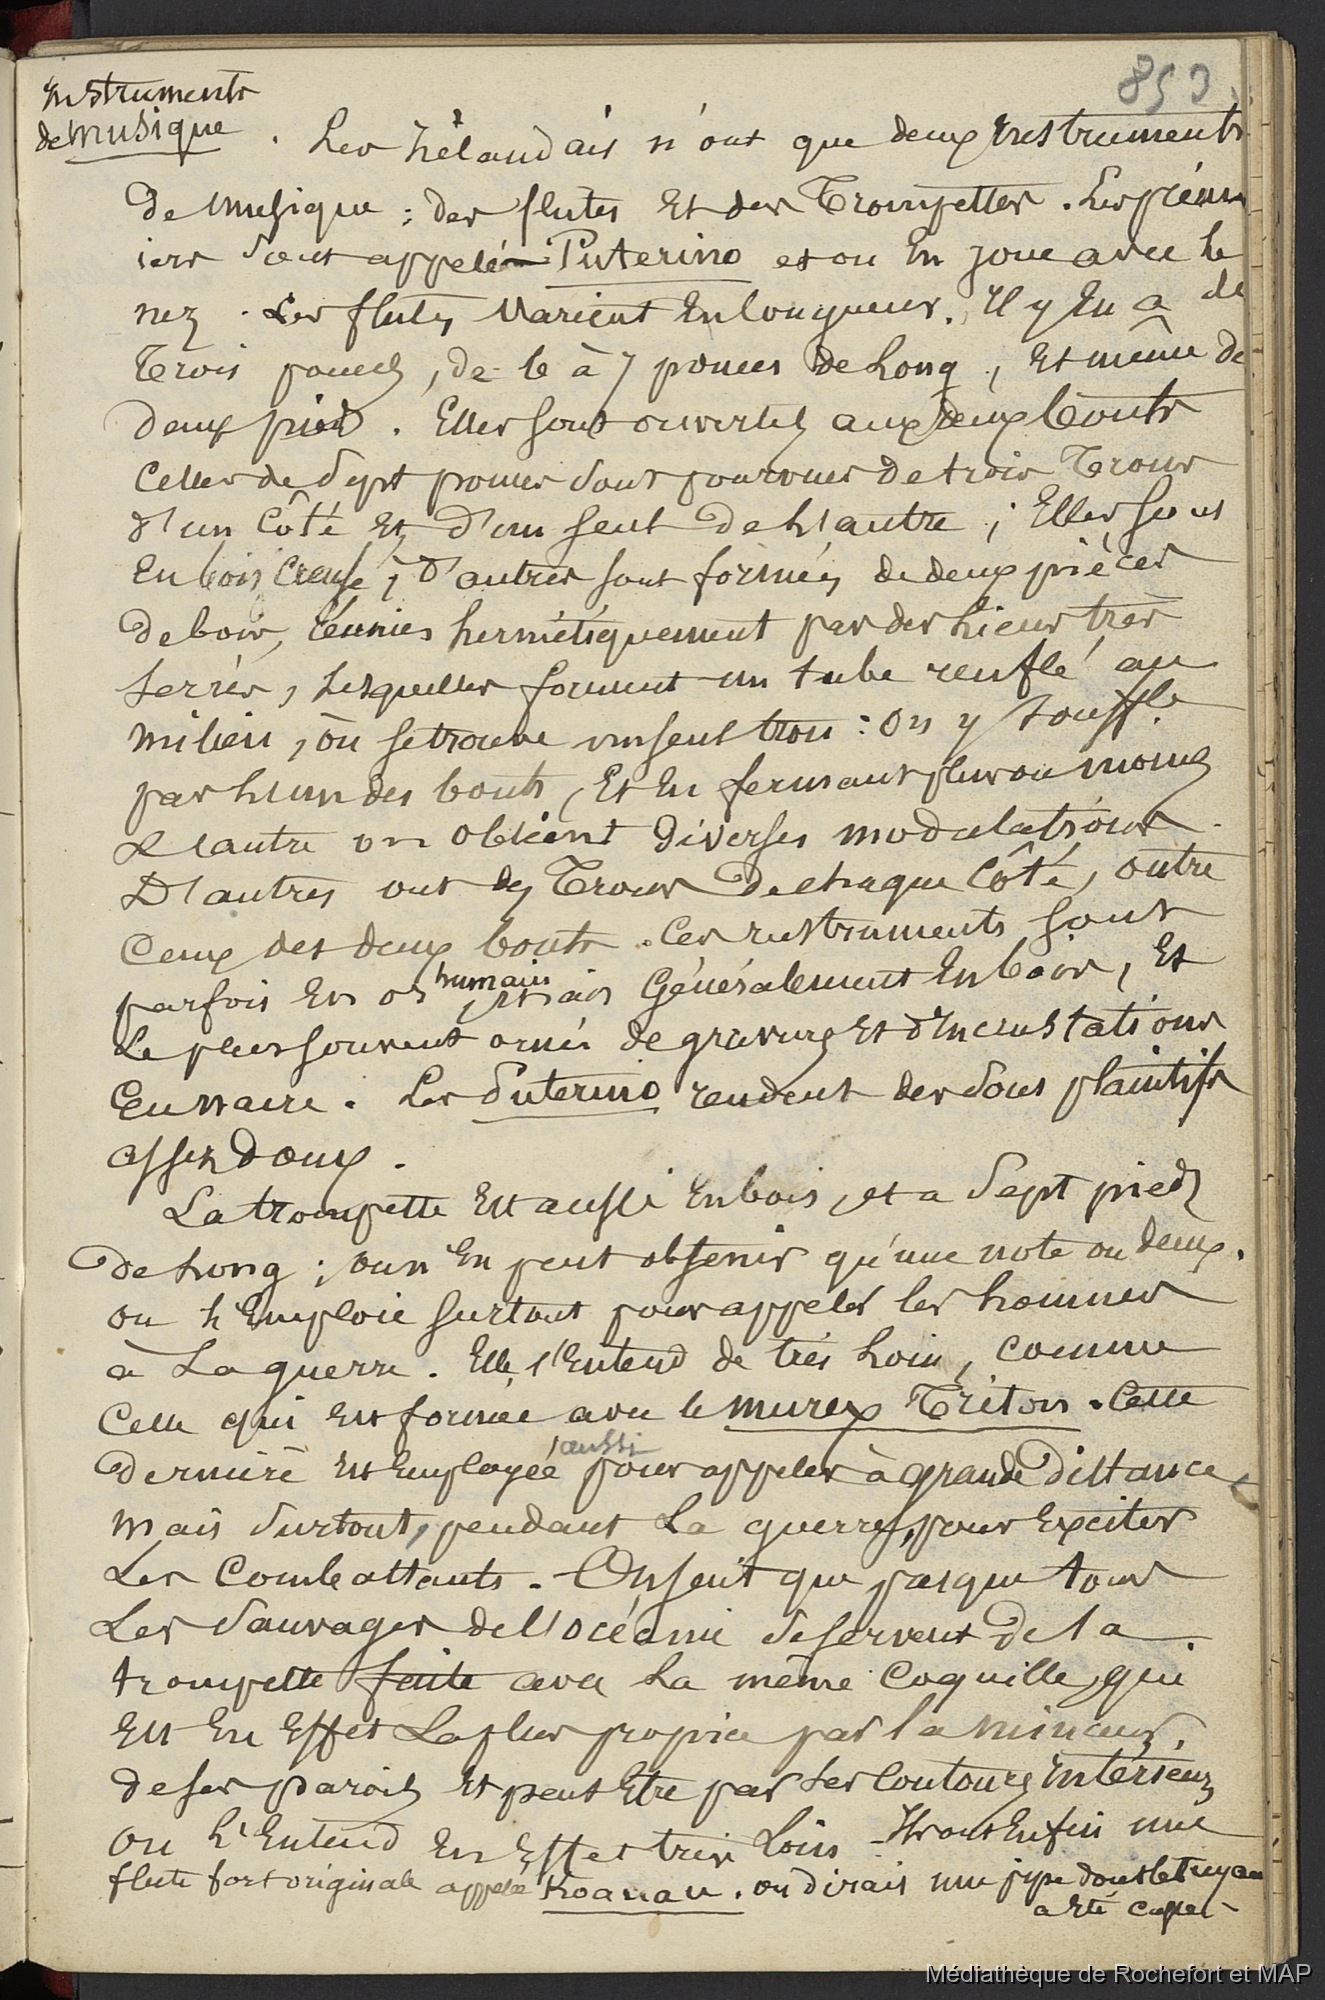 853
Instruments
de musique . Les Zélandais n'ont que deux instruments
de musique : des flutes et des Trompettes . Les prém
iers sont appelé Puterino et on en joue avec le
nez . Les flutes varient en longueur. Il y en a de
trois pouces, de 6 à 7 pouces de long, et même de
deux pieds . Elles sont ouvertes aux deux bouts
Celles de sept pouces sont pourvues de trois trous
d'un côté et d'un seul de l'autre ; Elles sont
en bois creusé ; d'autres sont formées de deux pièces
de bois, réunies hermétiquement par des liens très
serrés, lesquelles forment un tube renflé au
milieu, où se trouve un seul trou : on y souffle
par l'un des bouts, et en fermant plus ou moins
l'autre on obtient diverses modulations .
D'autres ont des trous de chaque côté, outre
ceux des deux bouts . Ces instruments sont
parfois en os humain, mais généralement en bois, et
le plus souvent ornés de gravures et d'incrustations
en nacre . Les Puterino rendent des sons plaintifs
assez doux .
La trompette est aussi en bois, et a sept pieds
de long ; on n'en peut obtenir qu'une note ou deux.
on l'emploie surtout pour appeler les hommes
à la guerre . Elle s'entend de très loin, comme
celle qui est formée avec le murex Triton . Cette
dernière est employée aussi pour appeler à grande distance,
mais surtout, pendant la guerre, pour exciter
les combattants . On sait que presque tous
les sauvages de l'océanie se servent de la
trompette faite avec la même coquille, qui
est en effet la plus propice par la minceur
de ses parois et peut être par ses contours intérieurs
on l'entend en effet très loin . Ils ont enfin une
flute fort originale appelée Koauau . on dirait une pipe dont le tuyau
a été coupé
Médiathèque de Rochefort et MAP